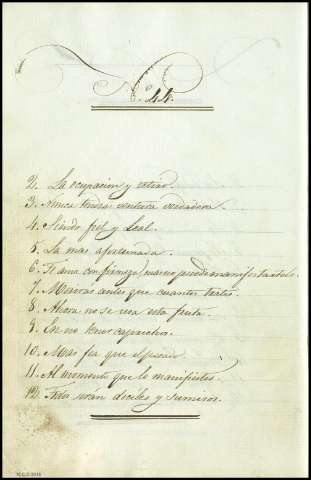 N. 44.
2. La ocupacion y retiro.
3. Nunca tendras ventura verdadera.
4. Siendo fiel y Leal.
5. La mas afortunada.
6. Te ama con firmeza, mas no puede manifestartelo.
7. Moiras antes que cuantos tratas.
8. Ahora no se usa esta fruta.
9. En no tener caprichos.
10. Mas fea que el pecado.
11. Al momento que lo manifiestes.
12. Ellos serán dociles y sumisos.